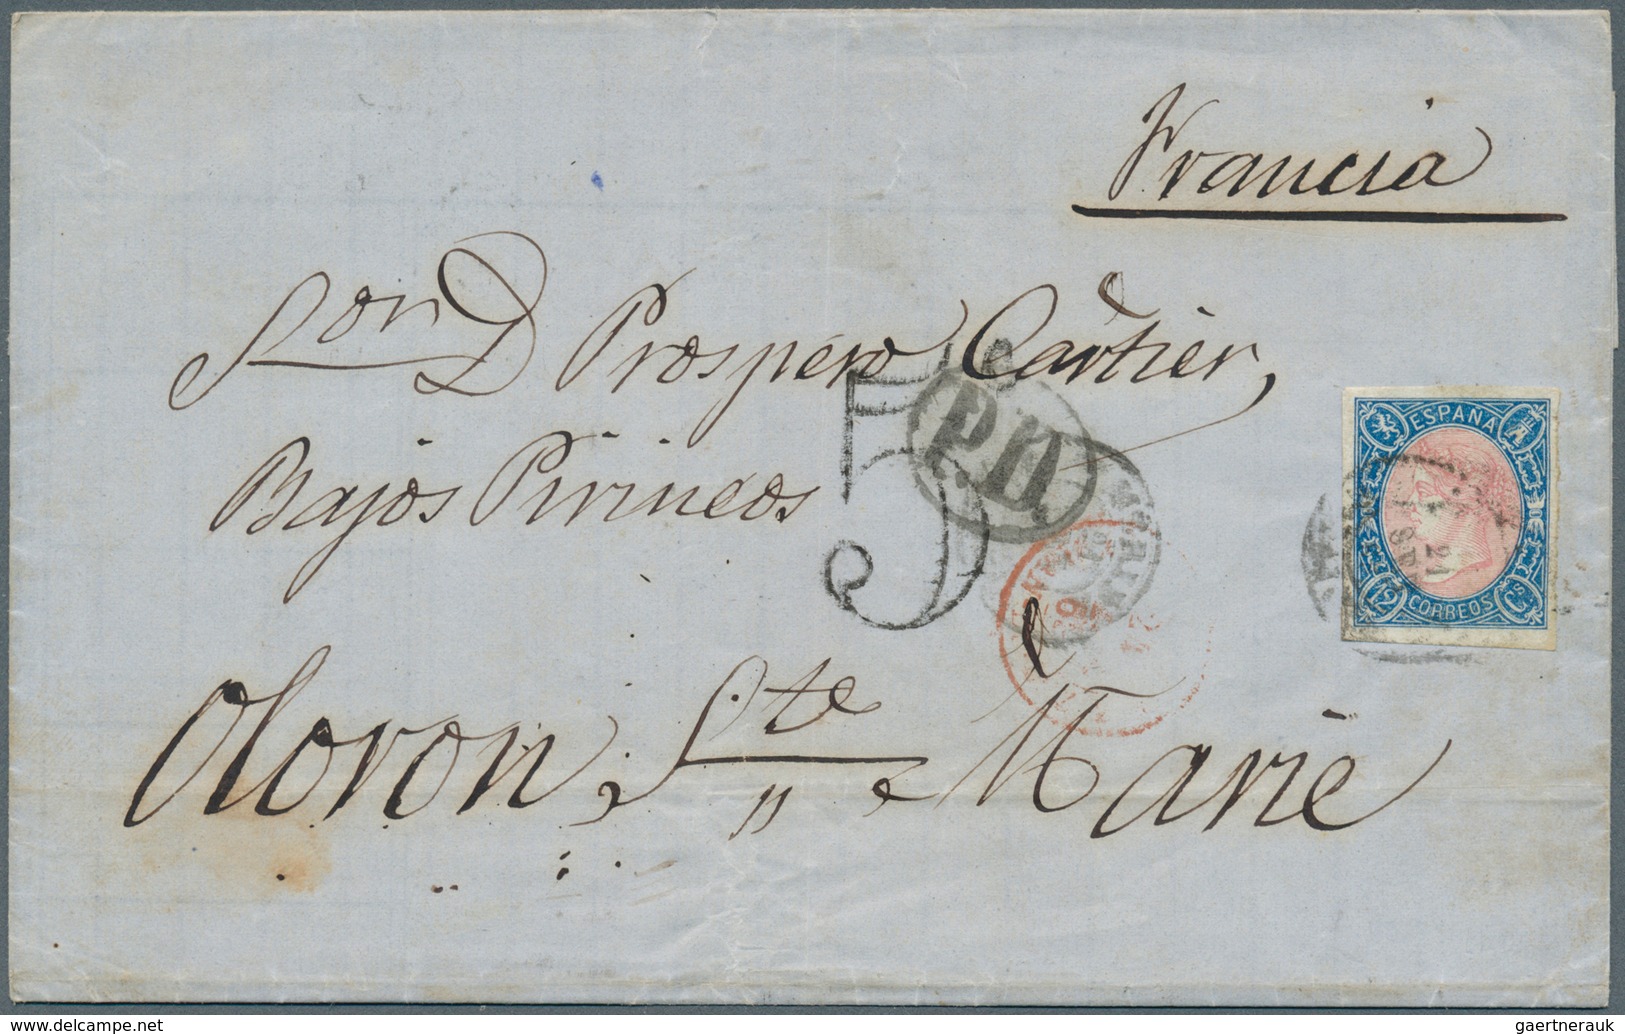 Francia
Sor D Prospero Cartier,
Bajos Pirineos
5
P.D.
ESPANA
12 CORREOS CS
21
Oloron, Ste Marie
www.delcampe.net
gaertnerauk